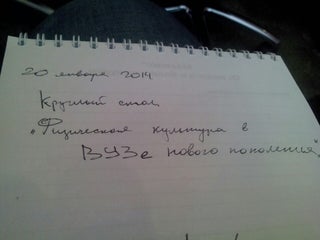 20 января 2014
Круглый стол
„Физическая культура в
ВУЗе нового поколения"